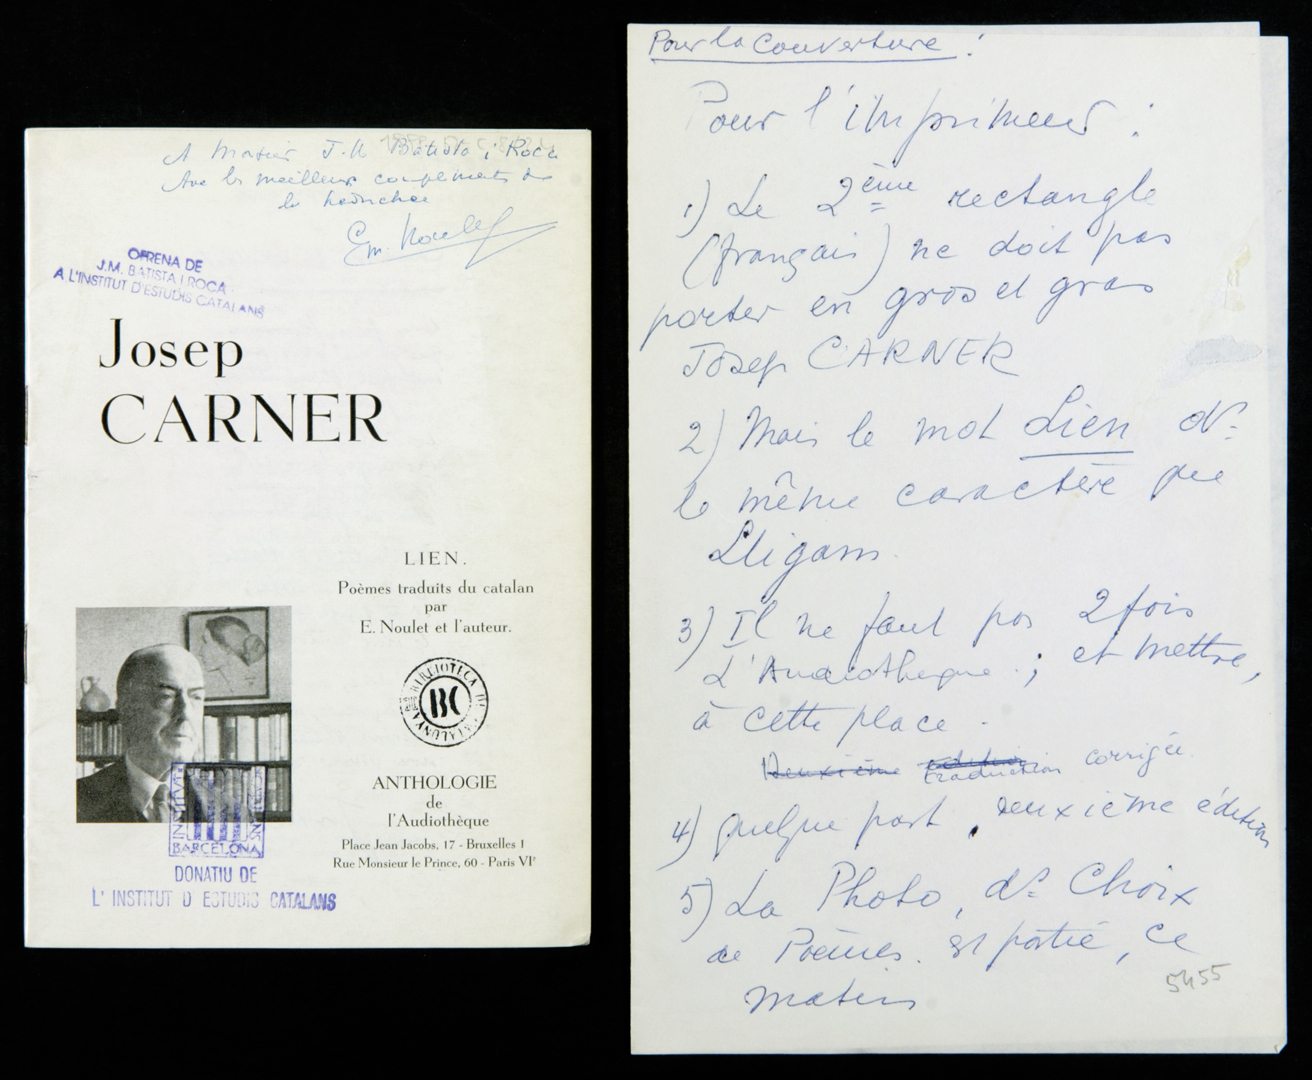 A Monsieur J.M Batista i Roca
Avec les meilleurs compliments de
la traductrice
Em. Noulet
OFRENA DE
J.M. BATISTA I ROCA
A L'INSTITUT D'ESTUDIS CATALANS
Josep
CARNER
LIEN.
Poèmes traduits du catalan
par
E. Noulet et l'auteur.
BIBLIOTECA DE CATALUNYA
BC
ANTHOLOGIE
de
l'Audiothèque
Place Jean Jacobs, 17 - Bruxelles 1
Rue Monsieur le Prince, 60 - Paris VIe
INSTITUT
BARCELONA
DONATIU DE
L' INSTITUT D ESTUDIS CATALANS
Pour la couverture :
Pour l'imprimeur :
1) Le 2ème rectangle
(français) ne doit pas
porter en gros et gras
Josep CARNER
2) Mais le mot Lien ds
le même caractère que
Lligam.
3) Il ne faut pas 2 fois
L'Audiothèque ; et mettre,
à cette place.
Deuxième edition traduction corrigée.
4) quelque part, deuxième édition
5) La Photo, ds Choix
de Poèmes. est partie, ce
matin
5455